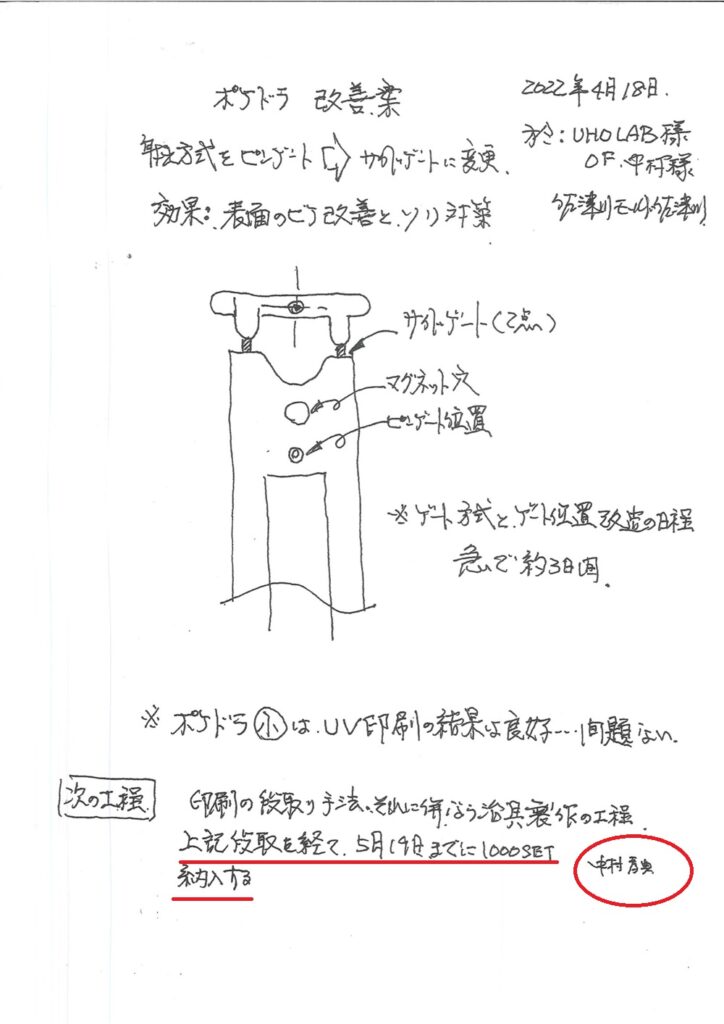 ポケドラ 改善案
2022年4月18日.
方式をピンゲート ⇨ サイドゲートに変更.
UHO LAB 様
OF. 中村様
効果: 表面のヒケ改善と、ソリ対策
佐津川モールド 佐津川
サイドゲート(2点)
マグネット穴
ピンゲート位置
※ ゲート方式と、ゲート位置改造の日程
急いで約3日間.
※ ポケドラ小は、UV印刷の結果は良好…問題ない.
次の工程
印刷の段取り手法、それに併なう治具製作の工程.
上記段取を経て、5月19日までに1000SET
納入する
中村